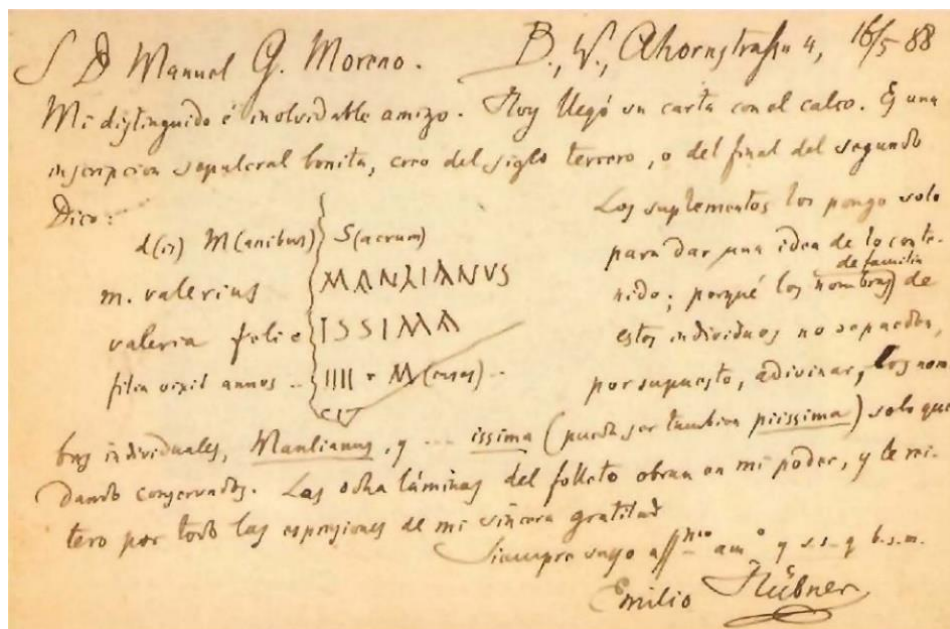 S D Manuel G. Moreno. B., W., Ahornstraße 4, 16/5 88
Mi distinguido é inolvidable amigo. Hoy llegó su carta con el calco. Es una
inscripcion sepulcral bonita, creo del siglo tercero, o del final del segundo
Dico:
d(is) M(anibus) S(acrum)
m. valerius MANLIANVS
valeria felic ISSIMA
filia vixit annos .. IIII · M(enses) ..
Los suplementos los pongo solo
para dar una idea de lo conte-
nido; porqué los nombres de familia de
estos individuos no se pueden,
por supuesto, adivinar, los nom
bres individuales, Manlianus, y ... issima (puede ser tambien piissima) solo que
dando conservados. Las ocho láminas del folleto obran en mi poder, y le rei-
tero por todo las espresiones de mi sincera gratitud
Siempre suyo affmo amo y s.s. q b.s.m.
Emilio Hübner